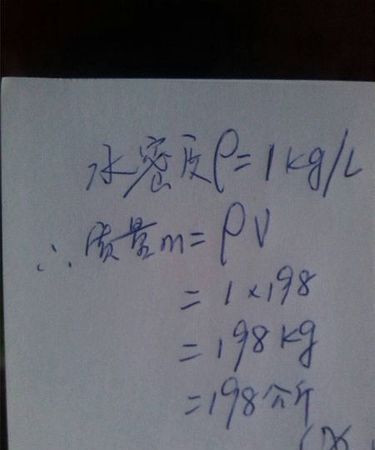 水密度ρ=1kg/L
∴质量m=ρV
=1×198
=198kg
=198公斤